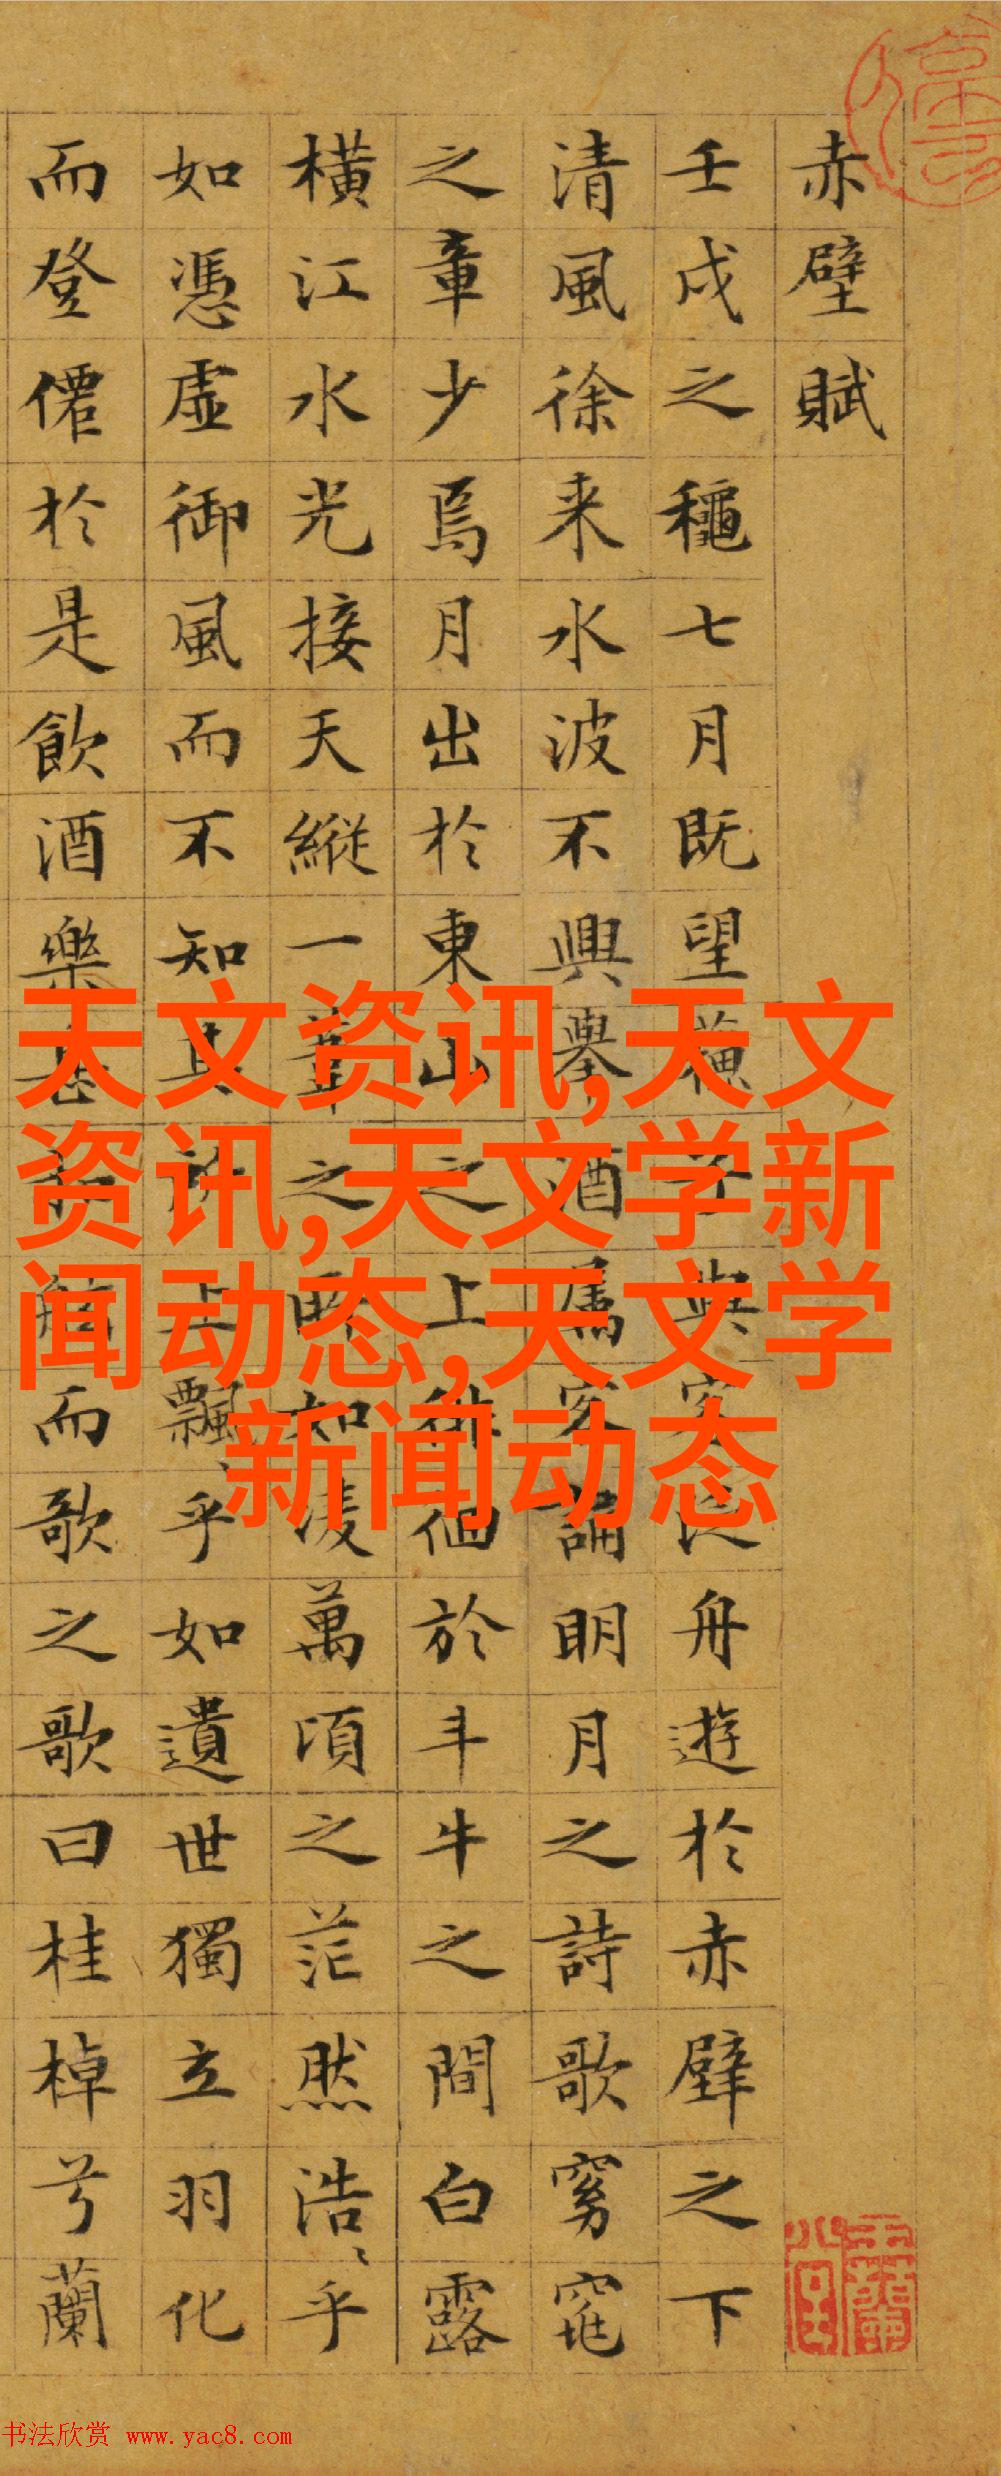 赤壁賦
壬戌之龝七月既望蘇子與客泛舟遊於赤壁之下
清風徐来水波不興舉酒屬客誦明月之詩歌窈窕
之章少焉月出於東山之上徘徊於斗牛之間白露
横江水光接天縱一葦之所如凌萬頃之茫然浩〻乎
如憑虛御風而不知其所止飄〻乎如遺世獨立羽化
而登僊於是飲酒樂甚扣舷而歌之歌曰桂棹兮蘭
天文资讯,天文
资讯,天文学新
闻动态,天文学
新闻动态
书法欣赏 www.yac8.com